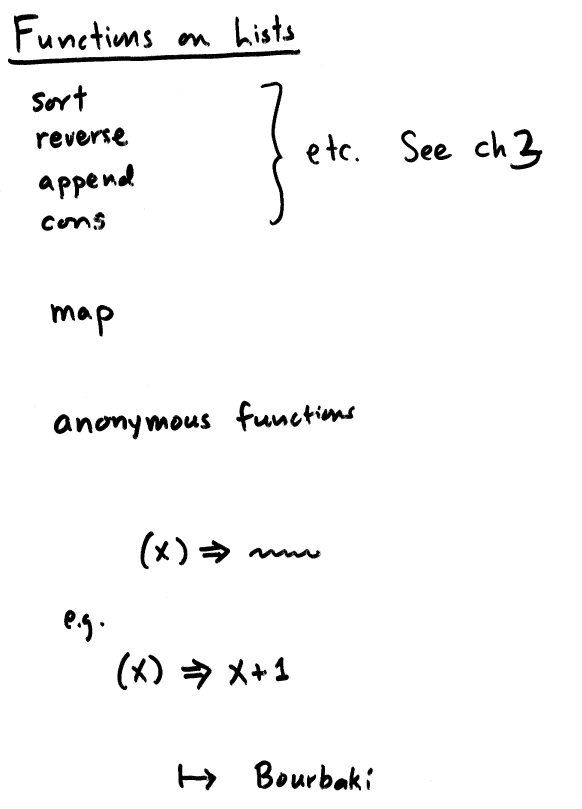 Functions on Lists
sort
reverse
append
cons
etc. See ch 3
map
anonymous functions
(x) ⇒
e.g.
(x) ⇒ x+1
↦ Bourbaki